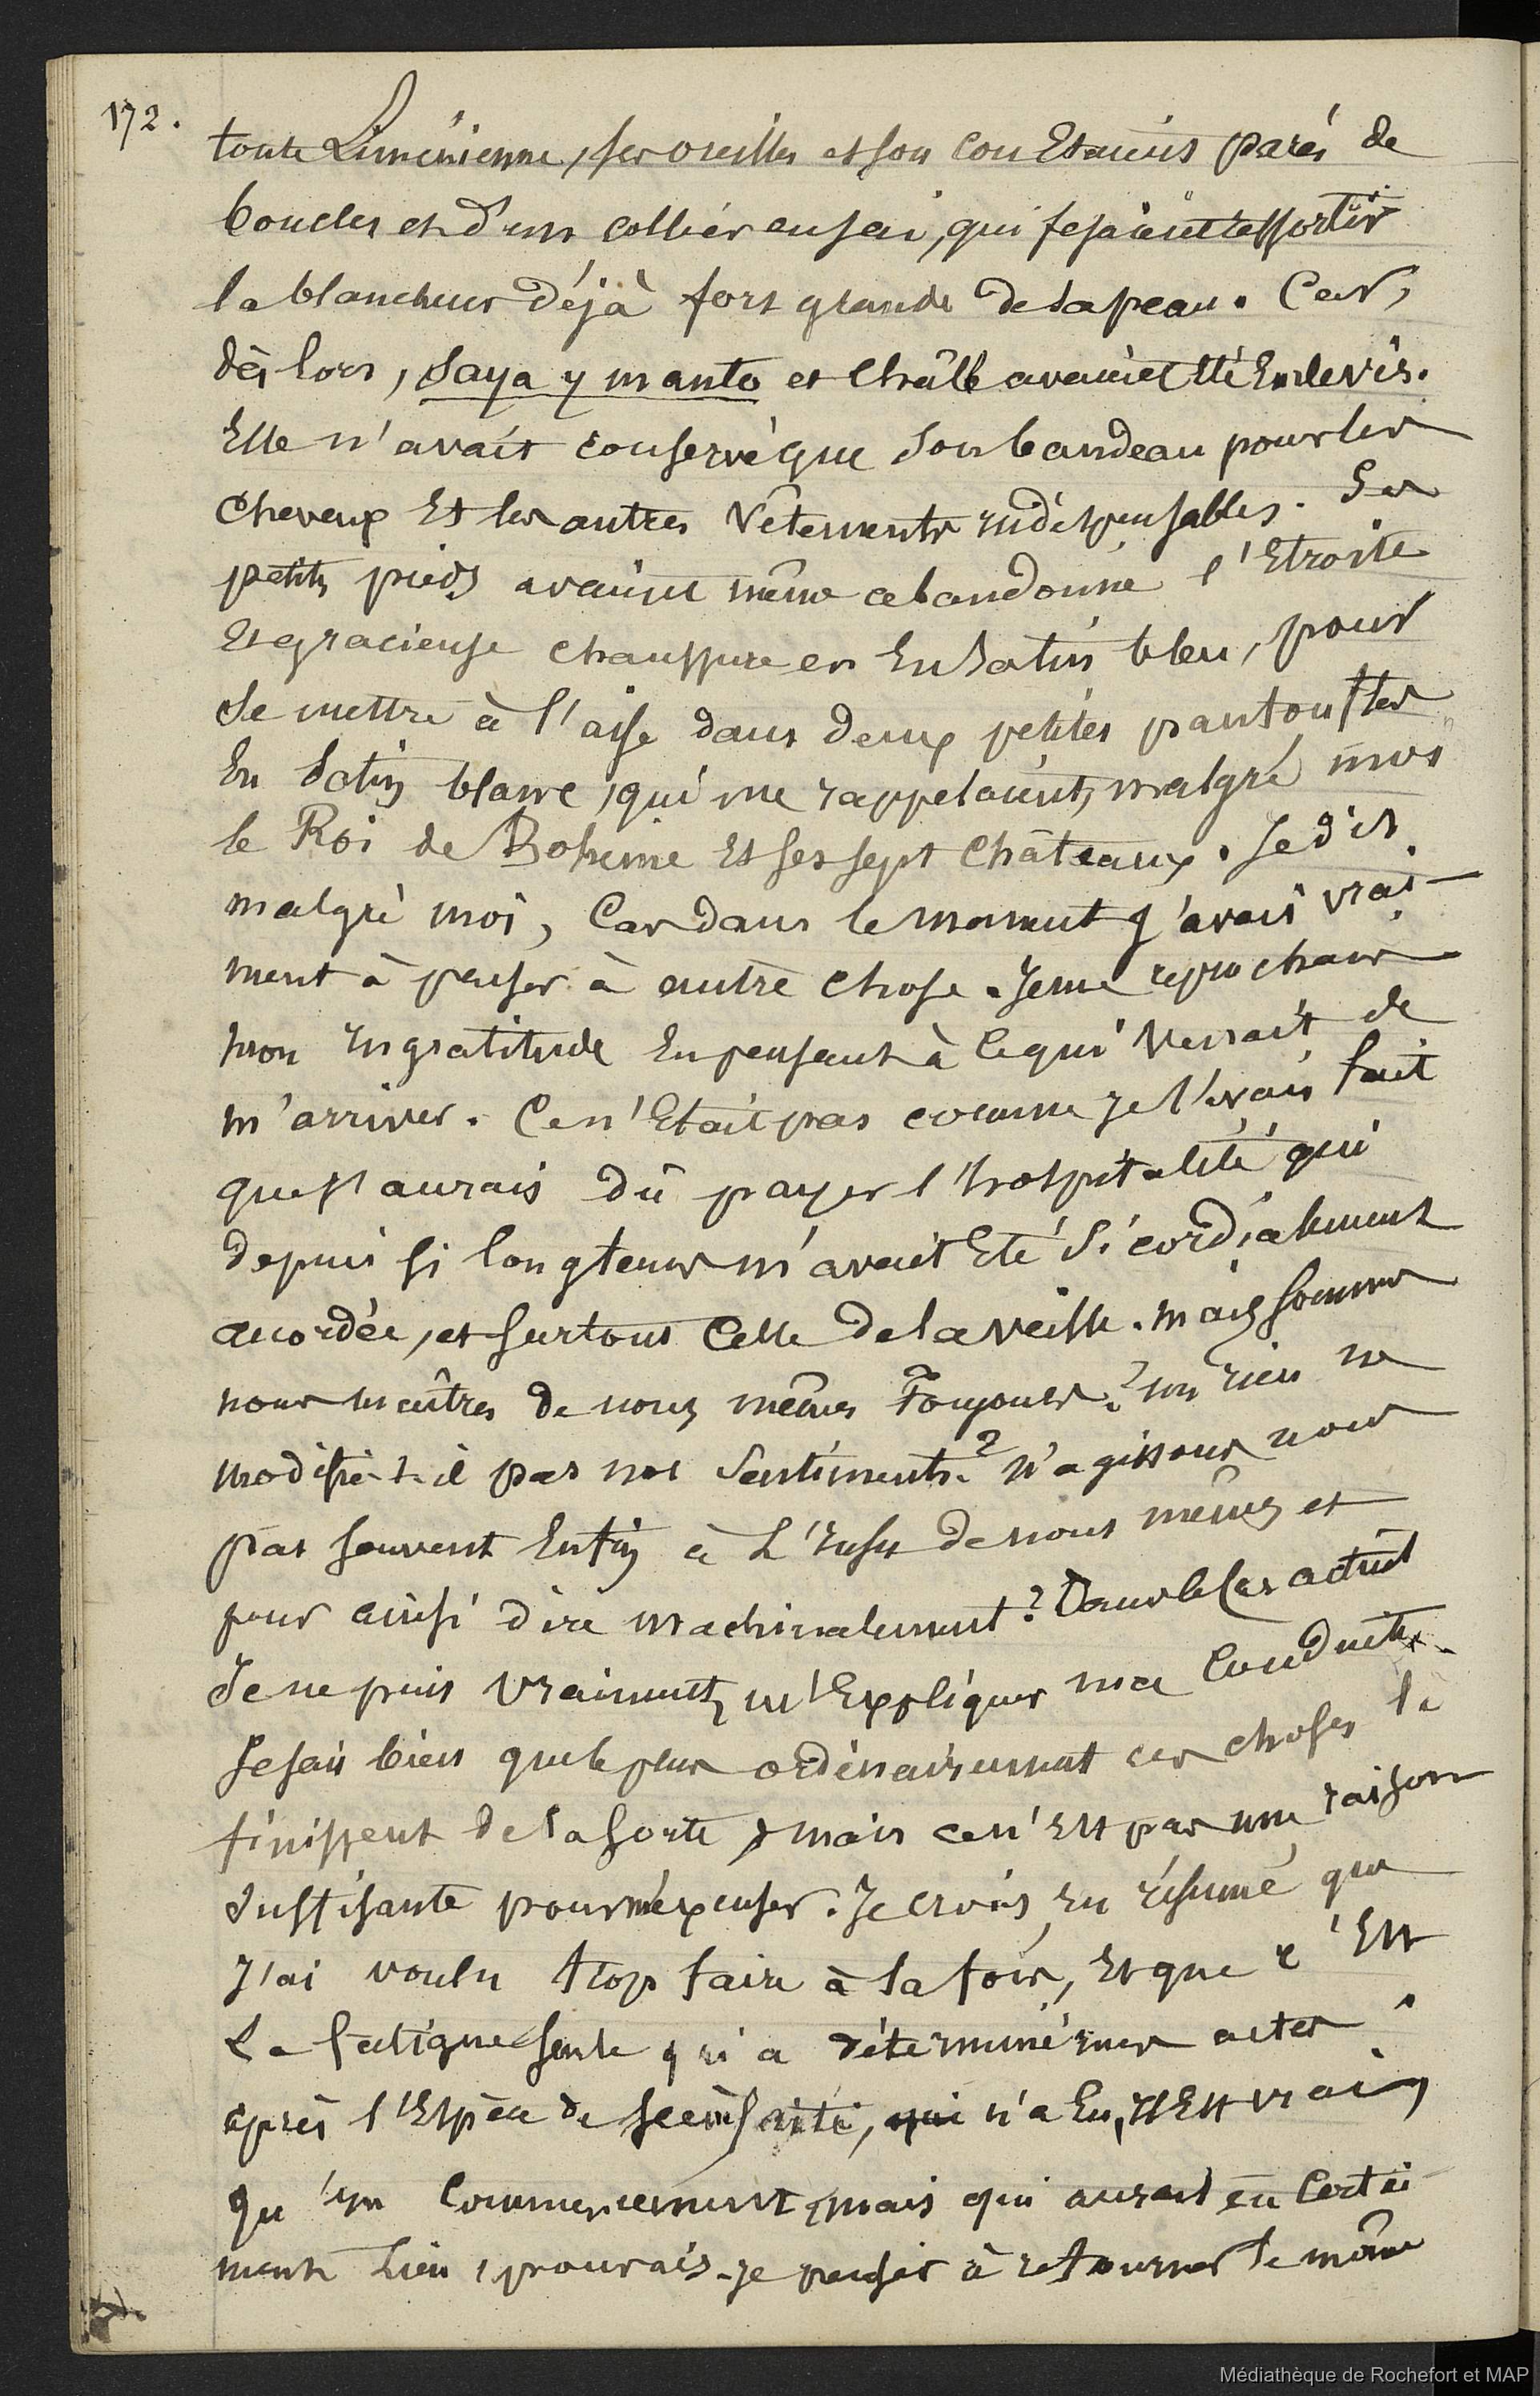 172.
toute Liménienne, ses oreilles et son cou étaient parés de
boucles et d'un collier en jai, qui fesaient ressortir
la blancheur déjà fort grande de sa peau. Car,
dès lors, saya y manto et châle avaient été enlevés.
Elle n'avait conservé que son bandeau pour les
cheveux et les autres vêtements indispensables. Ses
petits pieds avaient même abandonné l'étroite
et gracieuse chaussure en en satin bleu, pour
se mettre à l'aise dans deux petites pantoufles
en satin blanc, qui me rappelaient, malgré moi
le Roi de Bohême et ses sept châteaux. Je dis
malgré moi, car dans le moment j'avais vrai-
ment à penser à autre chose. Je me reprochais
mon ingratitude en pensant à ce qui venait de
m'arriver. Ce n'était pas comme je l'avais fait
que j'aurais dû payer l'hospitalité qui
depuis si longtems m'avait été si cordialement
accordée, et surtout celle de la veille. Mais sommes
nous maîtres de nous mêmes toujours? rien ne
modifie-t-il pas nos sentiments? N'agissons nous
pas souvent enfin à l'insu de nous mêmes et
pour ainsi dire machinalement? Dans le cas actuel
Je ne puis vraiment m'expliquer ma conduite.
Je sais bien que le plus ordinairement ces choses là
finissent de la sorte, mais ce n'est pas une raison
suffisante pour m'excuser. Je crois en résumé que
J'ai voulu trop faire à la fois, et que c'est
la fatigue seule qui a déterminé mes actes
après l'espèce de qui n'a eu, il est vrai,
qu'un commencement, mais qui aurait eu certai
ment lieu, pouvais-je penser à retourner le même
Médiathèque de Rochefort et MAP